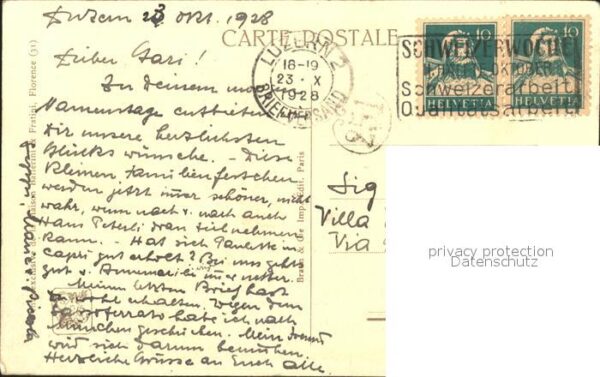 Luzern 23 Okt. 1928
CARTE POSTALE
Lieber Gari!
Zu Deinem
Namenstage entbieten
Dir unsere herzlichsten
Glückswünsche. - Diese
kleinen Familienfestchen
werden jetzt immer schöner, nicht
wahr, wenn nach u. nach auch
Hans Peterli dran teilnehmen
kann. - Hat sich Paulette in
Capri gut erholt? Bei uns geht's
gut u. Annemarie immer netter.
Meinen letzten Brief hast
Du wohl erhalten. Wegen dem
Sassoferrato habe ich nach
München geschrieben. Mein Freund
wird sich darum bemühen.
Herzliche Grüsse an Euch alle
LUZERN 2
18-19
23. X
1928
BRIEFVERSAND
SCHWEIZERWOCHE
OKTOBER
Schweizerarbeit
Qualitätsarbeit
10
10
HELVETIA
HELVETIA
Sig
Villa
Via
privacy protection
Datenschutz
Fratigi, Florence (31)
Braun & Cie Imp.-Edit. Paris